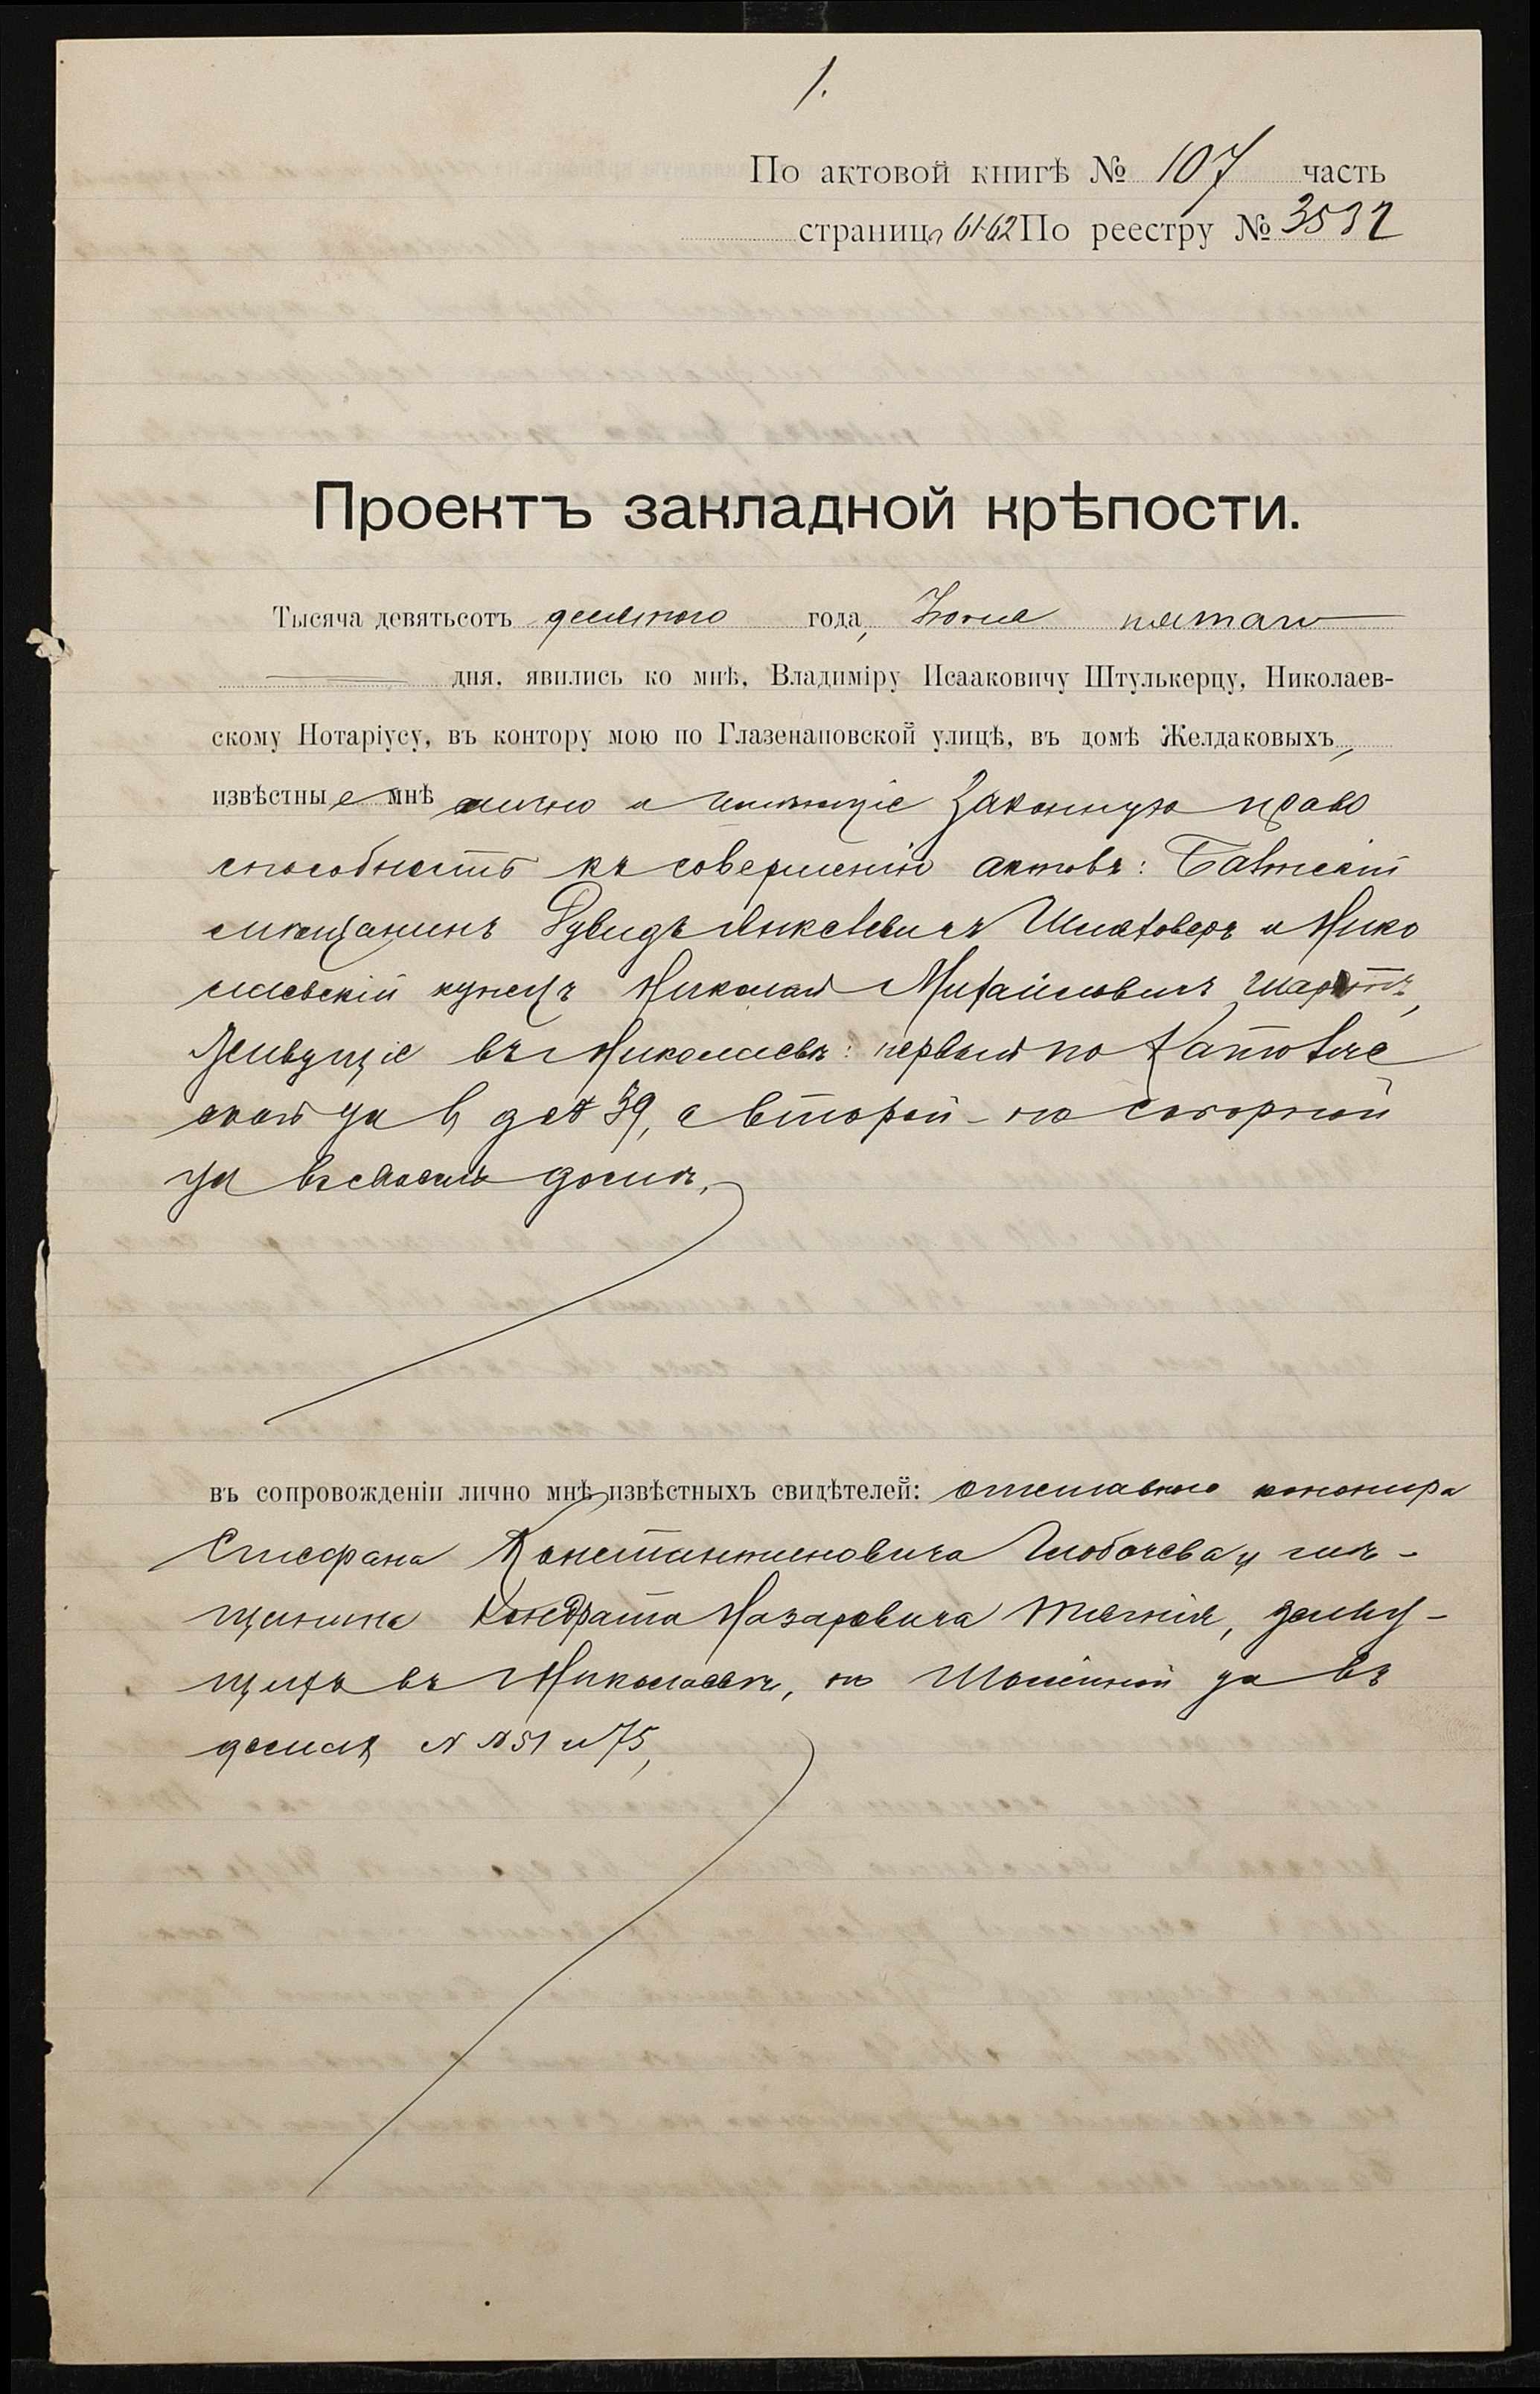 1.
По актовой книгѣ № 107 часть
страница 61-62 По реестру № 3532
Проектъ закладной крѣпости.
Тысяча девятьсотъ десятого года, Іюня пятаго
дня, явились ко мнѣ, Владиміру Исааковичу Штулькерцу, Николаев-
скому Нотаріусу, въ контору мою по Глазенаповской улицѣ, въ домѣ Желдаковыхъ,
извѣстные мнѣ лично и имѣющіе законную право
способность къ совершенію актовъ:
мѣщанинъ Рувидъ Янкелевичъ и Нико
лаевскій купецъ Николай Михайловичъ
живущіе въ Николаевѣ: первый по Католиче
ской ул въ д № 39, а второй - по Соборной
ул въ своемъ домѣ,
въ сопровожденіи лично мнѣ извѣстныхъ свидѣтелей: отставного канонира
Стефана Константиновича Глобачева и мѣ-
щанина Кондрата Назаровича живу-
щихъ въ Николаевѣ, по ул въ
домахъ № № 51 и 75,